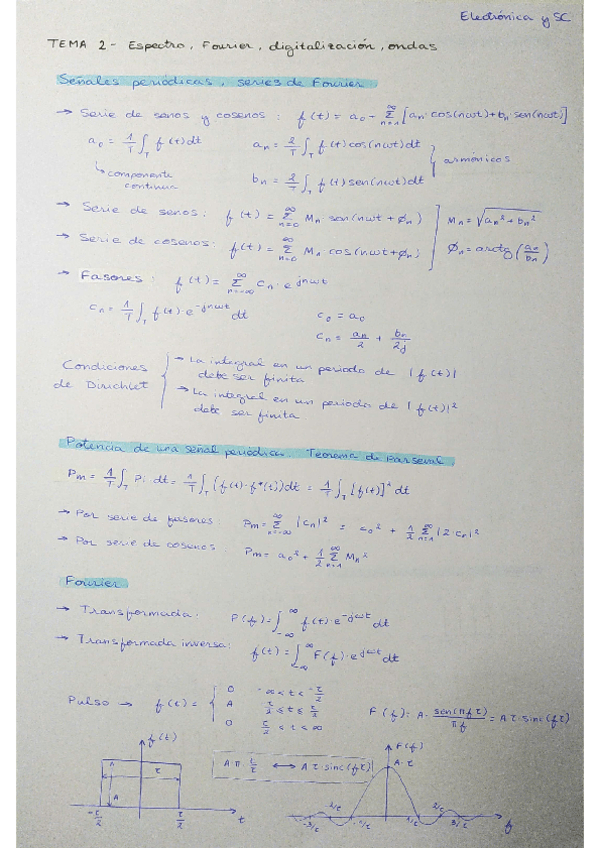 Electrónica y SC
TEMA 2 - Espectro, Fourier, digitalización, ondas
Señales periódicas, series de Fourier
→ Serie de senos y cosenos : f(t) = a₀ - Σ_{n=1}^{∞} [aₙ cos(nωt) + bₙ sen(nωt)]
a₀ = 1/T ∫_T f(t)dt   aₙ = 2/T ∫_T f(t)cos(nωt)dt
↳ componente continua   bₙ = 2/T ∫_T f(t)sen(nωt)dt   } armónicos
→ Serie de senos: f(t) = Σ_{n=0}^{∞} Mₙ · sen(nωt + øₙ)   Mₙ = √(aₙ² + bₙ²)
→ Serie de cosenos: f(t) = Σ_{n=0}^{∞} Mₙ cos(nωt + øₙ)   øₙ = arctg (aₙ/bₙ)
→ Fasores: f(t) = Σ_{n=-∞}^{∞} Cₙ · e^{jnωt}
Cₙ = 1/T ∫_T f(t) · e^{-jnωt} dt   C₀ = a₀
Cₙ = aₙ/2 + bₙ/2j
Condiciones de Dirichlet
→ La integral en un periodo de |f(t)|
debe ser finita
→ La integral en un periodo de |f(t)|²
debe ser finita
Potencia de una señal periódica. Teorema de Parseval.
Pm = 1/T ∫_T Pi dt = 1/T ∫_T (f(t)·f*(t))dt = 1/T ∫_T [f(t)]² dt
→ Por serie de fasores   Pm = Σ_{n=-∞}^{∞} |Cₙ|² = C₀² + 1/2 Σ_{n=1}^{∞} |2·Cₙ|²
→ Por serie de cosenos :   Pm = a₀² + 1/2 Σ_{n=1}^{∞} Mₙ²
Fourier
→ Transformada:   F(f) = ∫_{-∞}^{∞} f(t) · e^{-jωt} dt
→ Transformada inversa:   f(t) = ∫_{-∞}^{∞} F(f) · e^{jωt} dt
Pulso → f(t) = { 0   -∞ < t < -τ/2
A   τ/2 ≤ t ≤ τ/2
0   τ/2 < t < ∞
F(f) = A · sen(πfτ)/πf = Aτ·sinc(fτ)
f(t)   A   τ   -τ/2   τ/2   t
Aπ t/τ ↔ Aτ sinc(fτ)
F(f)   A·τ   -3/τ   -2/τ   -1/τ   1/τ   2/τ   3/τ   f